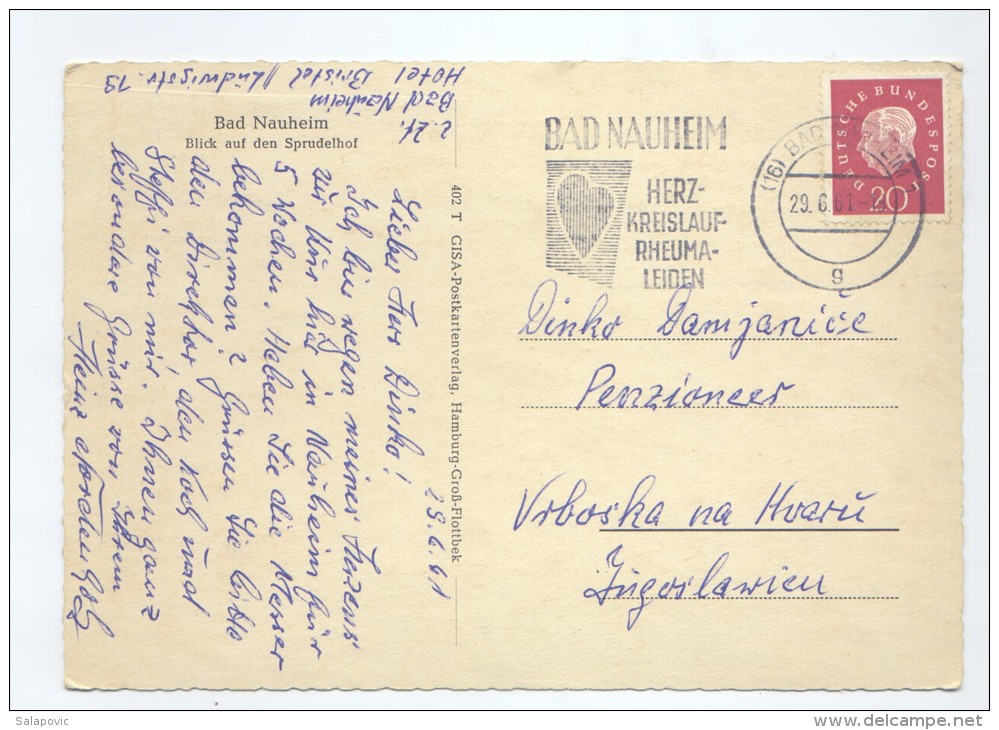 z. Zt.
Bad Nauheim
Hotel Bristol / Ludwigstr. 19
Bad Nauheim
Blick auf den Sprudelhof
28.6.61
Lieber Herr Dinko!
Ich bin wegen meines Herzens
zur Kur hier in Nauheim für
5 Wochen. Haben Sie die Messer
bekommen? Grüssen Sie bitte
den Direktor, den Koch und
Steffi von mir. Ihnen ganz
besondere Grüsse von Ihrem
Heinz
402 T GISA-Postkartenverlag, Hamburg-Groß-Flottbek
BAD NAUHEIM
HERZ-
KREISLAUF-
RHEUMA-
LEIDEN
(16) BAD NAUHEIM
29.6.61
g
DEUTSCHE BUNDESPOST
20
Dinko Damjanić
Penzioner
Vrboska na Hvaru
Jugoslawien
Salapovic
delcampe.net